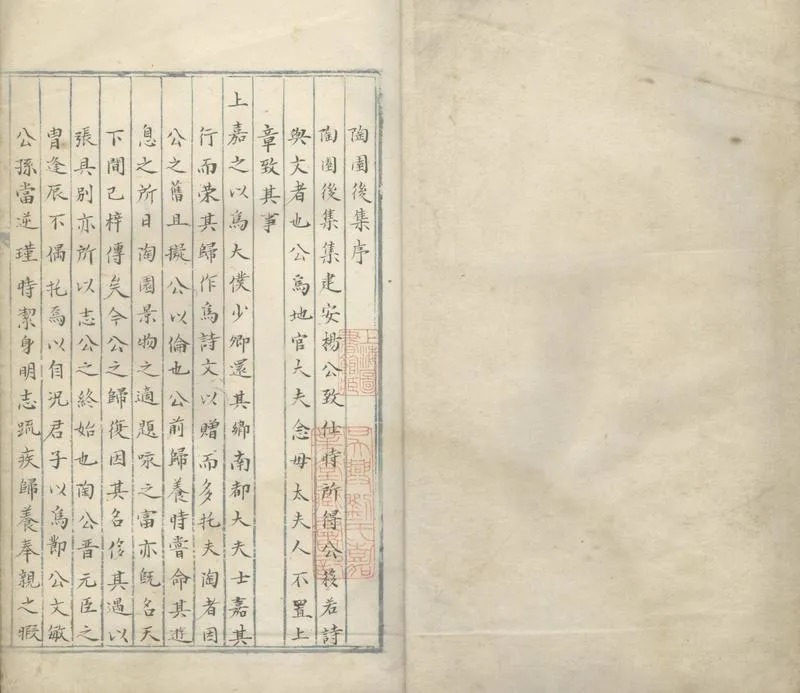 陶園後集序
陶園後集集建安楊公致仕時所得公移若詩
與文者也公為地官大夫念母太夫人不置上
章致其事
上嘉之以為大僕少卿還其鄉南都大夫士嘉其
行而荣其歸作為詩文以贈而多托夫陶者因
公之舊且擬公以倫也公前歸養時嘗命其遊
息之所曰陶園景物之適題咏之富亦既名天
下間已梓傳矣今公之歸復因其名侈其遇以
張具別亦所以志公之終始也陶公晋元臣之
胄逢辰不偶托焉以自况君子以為鄰公文敏
公孫當逆瑾時潔身明志疏疾歸養奉親之暇
上海圖書館藏